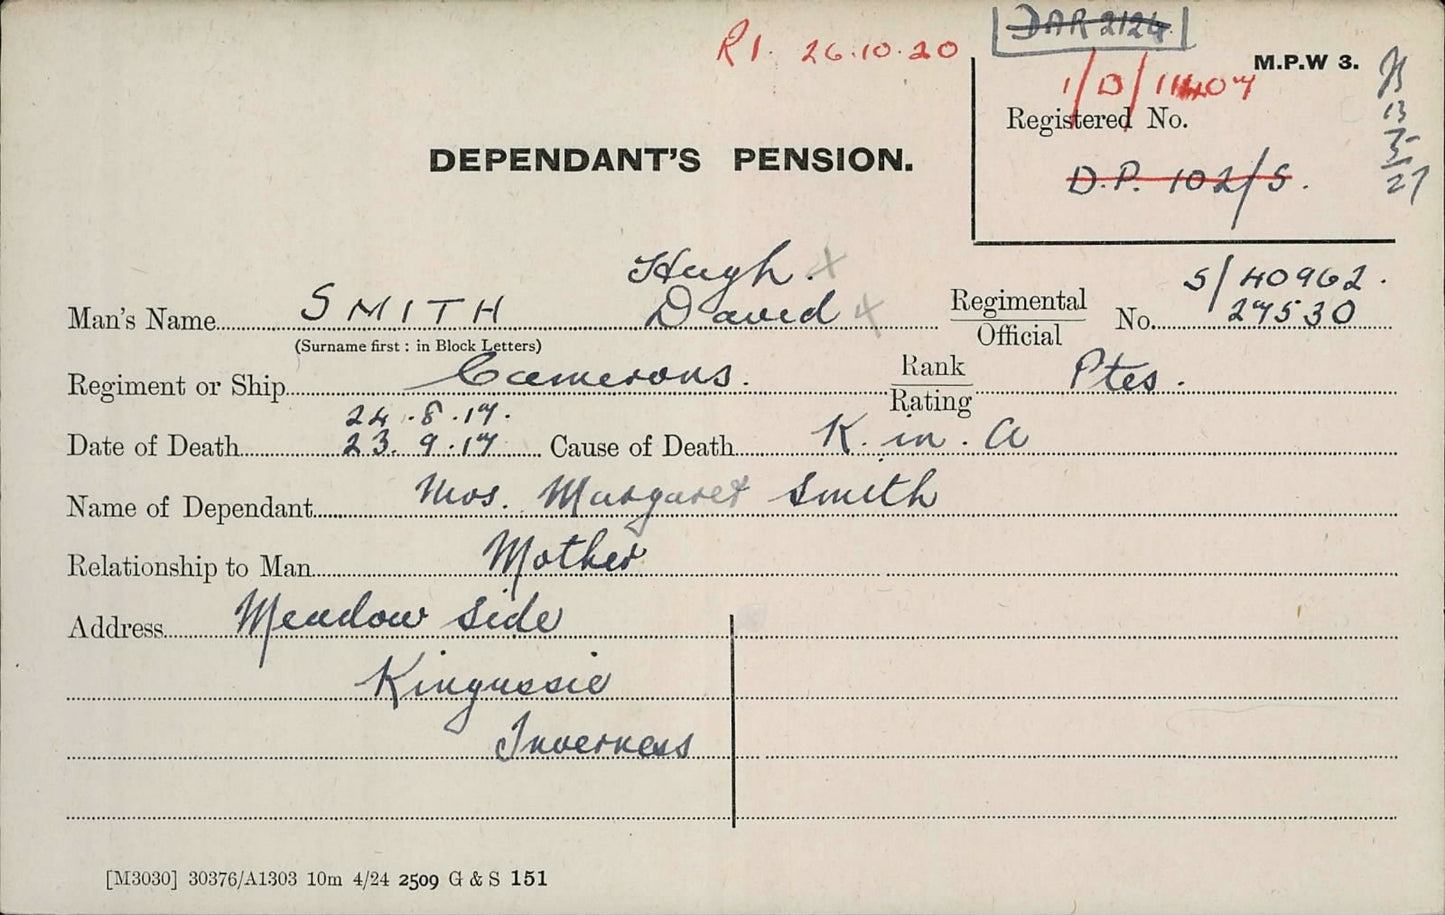 R1. 26.10.20
DAR 2124
M.P.W 3.
1/D/11407
Registered No.
D.P. 102/S.
13
5
27
DEPENDANT'S PENSION.
Hugh. x
S/40962.
Man's Name SMITH David x Regimental/Official No. 27530
(Surname first: in Block Letters)
Regiment or Ship Camerons. Rank/Rating Ptes.
24.8.17.
Date of Death 23.9.17 Cause of Death K. in. A
Name of Dependant Mrs. Margaret Smith
Relationship to Man Mother
Address Meadow Side
Kingussie
Inverness
[M3030] 30376/A1303 10m 4/24 2509 G & S 151